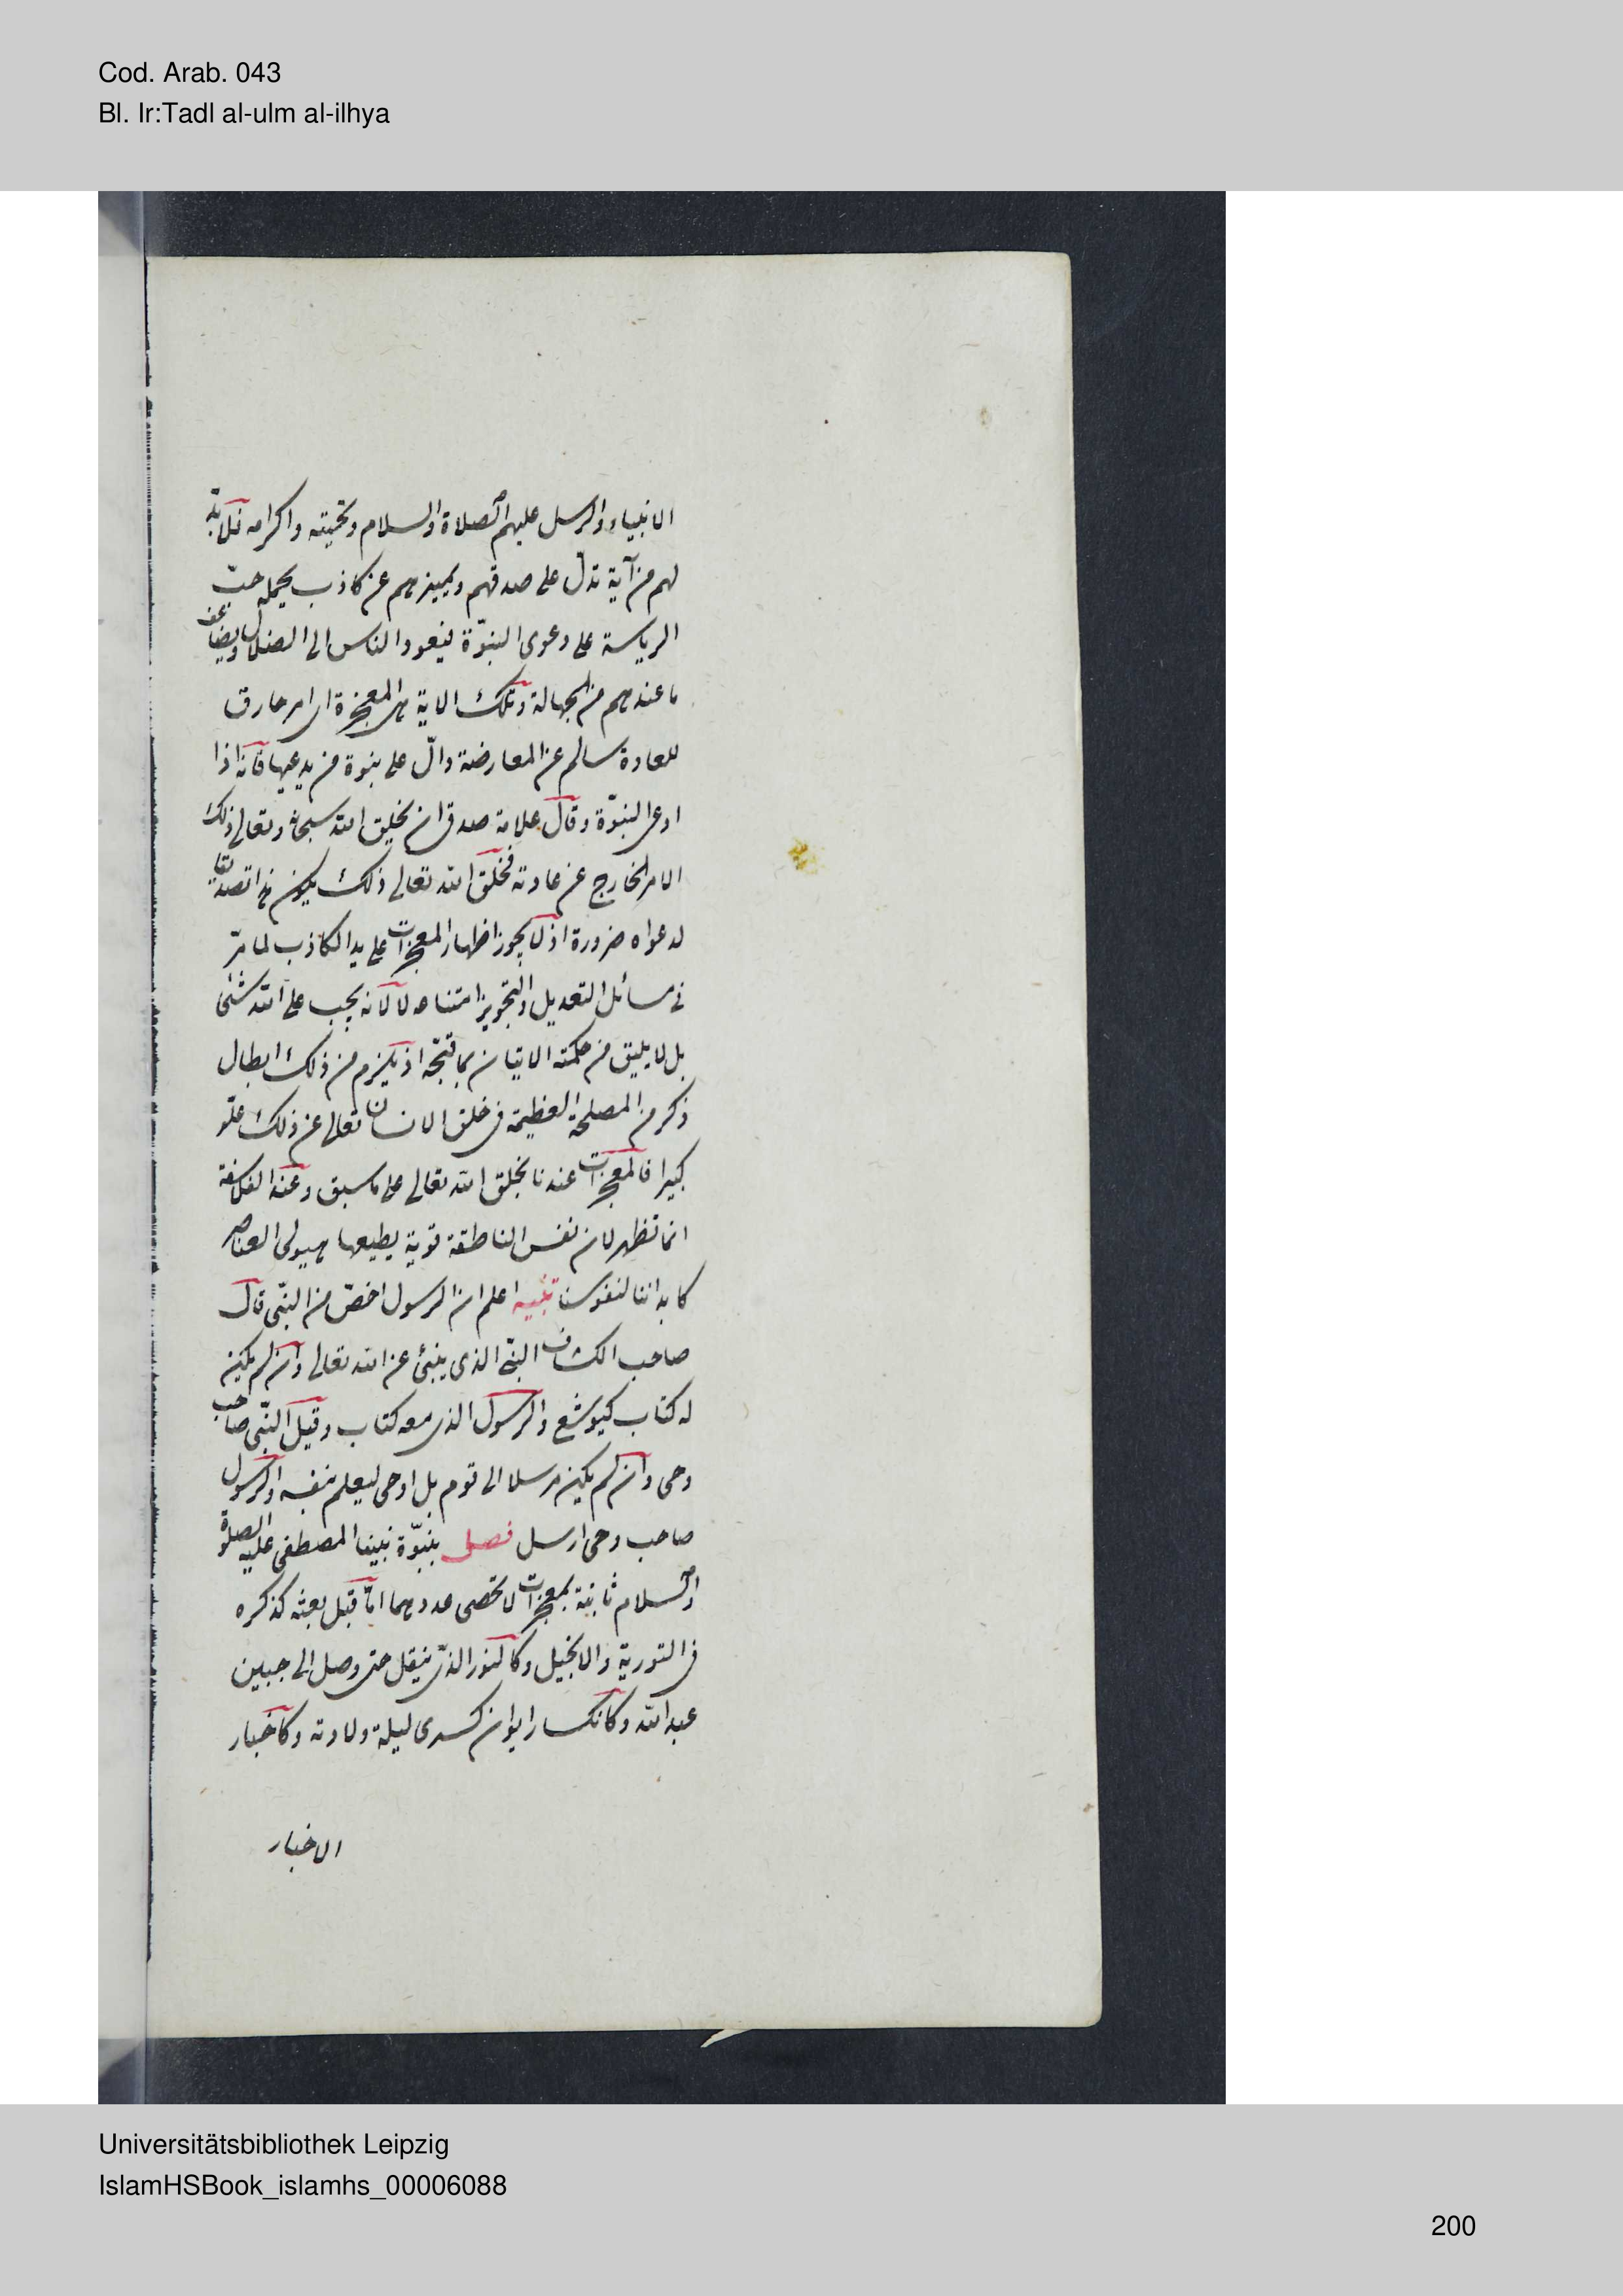 Cod. Arab. 043
Bl. Ir:Tadl al-ulm al-ilhya
الانبياء والرسل عليهم الصلاة والسلام وتحيته واكرامه فلا بد
لهم من آية تدل على صدقهم ويميزهم عن كاذب يحمله حب
الرياسة على دعوى النبوّة ليقودوا الناس الى الضلال ويضاعف
ما عندهم من الجهالة وتلك الاية هى المعجزة اى امر خارق
للعادة سالم عن المعارضة دالّ على نبوة من يدعيها فانه اذا
ادعى النبوّة وقال علامة صدقى ان يخلق الله سبحانه وتعالى ذلك
الامر الخارج عن عادته فخلق الله تعالى ذلك يكون هذا تصديقا
لدعواه ضرورة اذ لا يجوز اظهار المعجزات على يد الكاذب لما مرّ
فى مسائل التعديل والتجويز امتناعه لا لانه يجب على الله شئى
بل لا يليق من حكمته الاتيان بما قبّحه اذ يلزم من ذلك ابطال
ذكر من المصلحة العظيمة فى خلق الانسان تعالى عن ذلك علوّ
كبيرا فالمعجزات عندنا بخلق الله تعالى على ما سبق وعند الفلاسفة
انما تظهر لان نفس الناطقة قوية يطيعها هيولى العناصر
كابداننا لنفوسنا تنبيه اعلم ان الرسول اخصّ من النبّى قال
صاحب الكشاف النبّى الذى ينبئ عن الله تعالى وان لم يكن
له كتاب كيوشع والرسول الذى معه كتاب وقيل النبّى صاحب
وحى وان لم يكن مرسلا الى قوم بل اوحى ليعلم بنفسه والرسول
صاحب وحى ارسل فصل بنبوّة نبينا المصطفى عليه الصلوة
والسلام ثابتة بمعجزات لا تحصى عددهما امّا قبل بعثه كذكره
فى التورية والانجيل وكالنور الذى ينقل حتى وصل الى جبين
عبد الله وكانكسار ايوان كسرى ليلة ولادته وكاخبار
الاخبار
Universitätsbibliothek Leipzig
IslamHSBook_islamhs_00006088
200